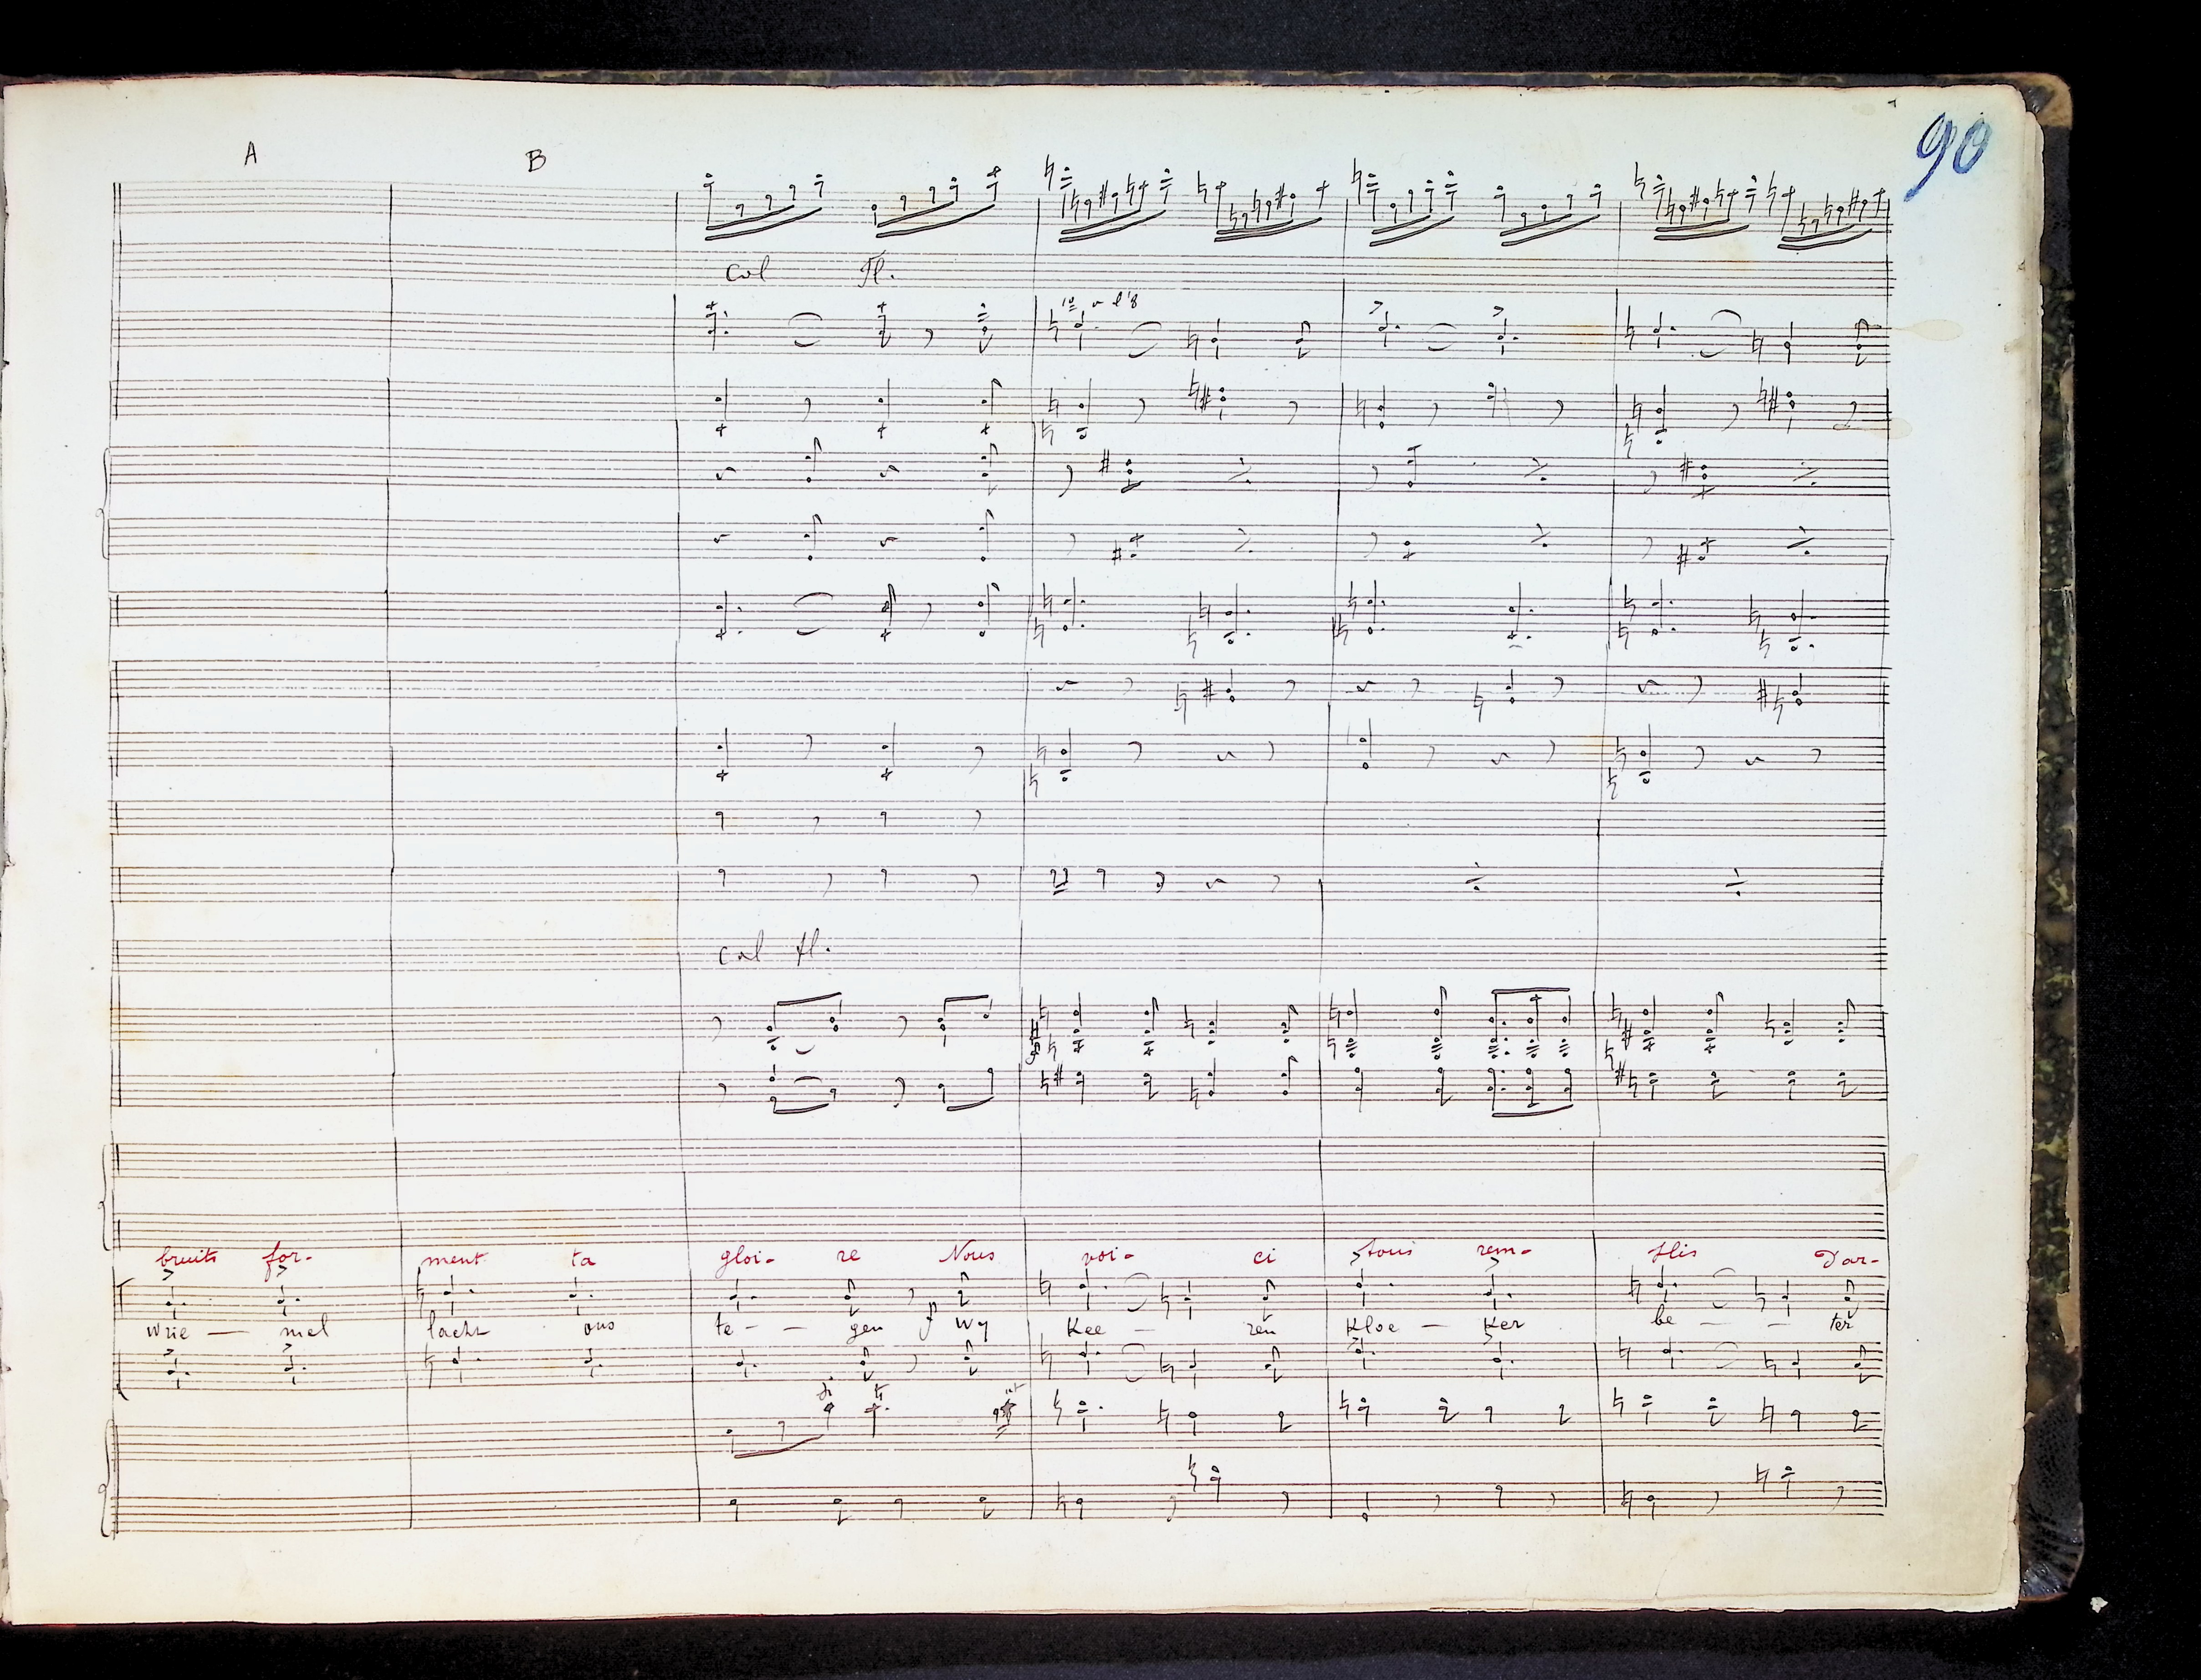 90
A B
col fl.
col fl.
bruits for- ment ta gloi- re Nous voi- ci tous rem- plis D'ar-
wrie — mel lacht ons te - - gen Wy Kee — ren Kloe — Ker be — — ter